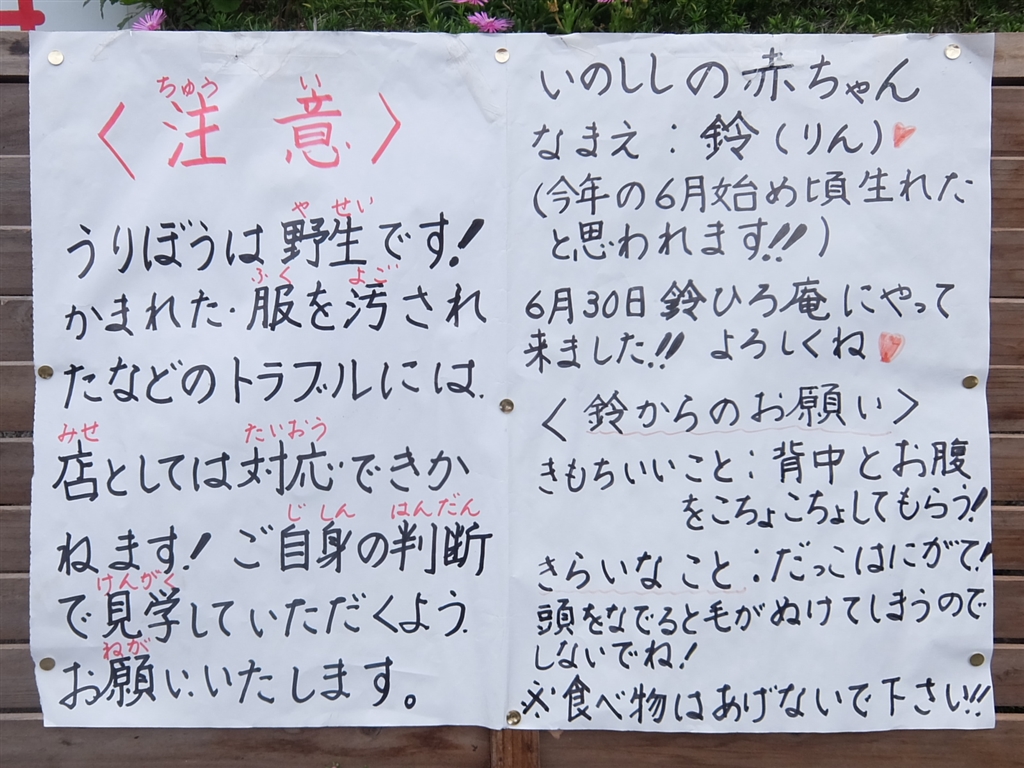 〈注意〉
ちゅう い
うりぼうは野生です!
や せい
かまれた・服を汚され
ふく よご
たなどのトラブルには、
店としては対応できか
みせ たいおう
ねます!ご自身の判断
じ しん はんだん
で見学していただくよう、
けんがく
お願いいたします。
ねが
いのししの赤ちゃん
なまえ:鈴(りん)♥
(今年の6月始め頃生れた
と思われます!!)
6月30日鈴ひろ庵にやって
来ました!!よろしくね♥
〈鈴からのお願い〉
きもちいいこと:背中とお腹
をこちょこちょしてもらう!
きらいなこと:だっこはにがて!
頭をなでると毛がぬけてしまうので
しないでね!
※食べ物はあげないで下さい!!